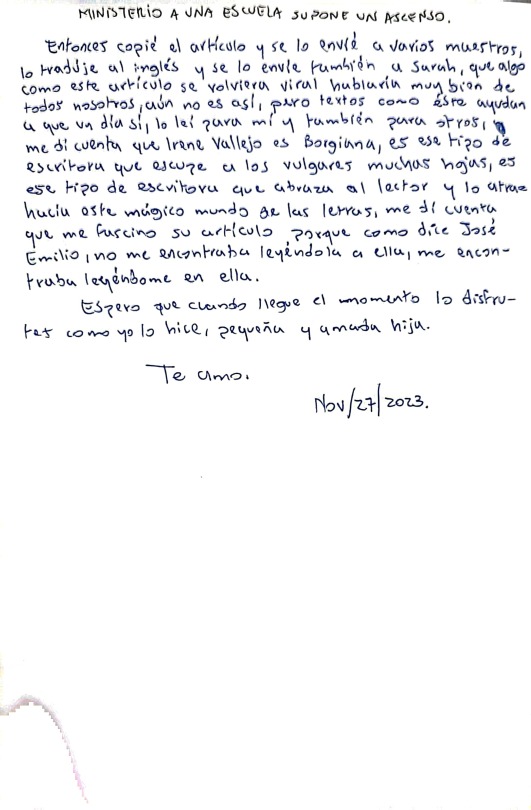 MINISTERIO A UNA ESCUELA SUPONE UN ASCENSO.
Entonces copié el artículo y se lo envié a varios maestros,
lo traduje al inglés y se lo envíe también a Sarah, que algo
como este artículo se volviera viral hablaría muy bien de
todos nosotros, aún no es así, pero textos como éste ayudan
a que un día sí, lo leí para mí y también para otros, y
me di cuenta que Irene Vallejo es Borgiana, es ese tipo de
escritora que escupe a los vulgares muchas hojas, es
ese tipo de escritora que abraza al lector y lo atrae
hacia este mágico mundo de las letras, me dí cuenta
que me fascino su artículo porque como dice José
Emilio, no me encontraba leyéndola a ella, me encon-
traba leyéndome en ella.
Espero que cuando llegue el momento lo disfru-
tes como yo lo hice, pequeña y amada hija.
Te amo.
Nov/27/2023.